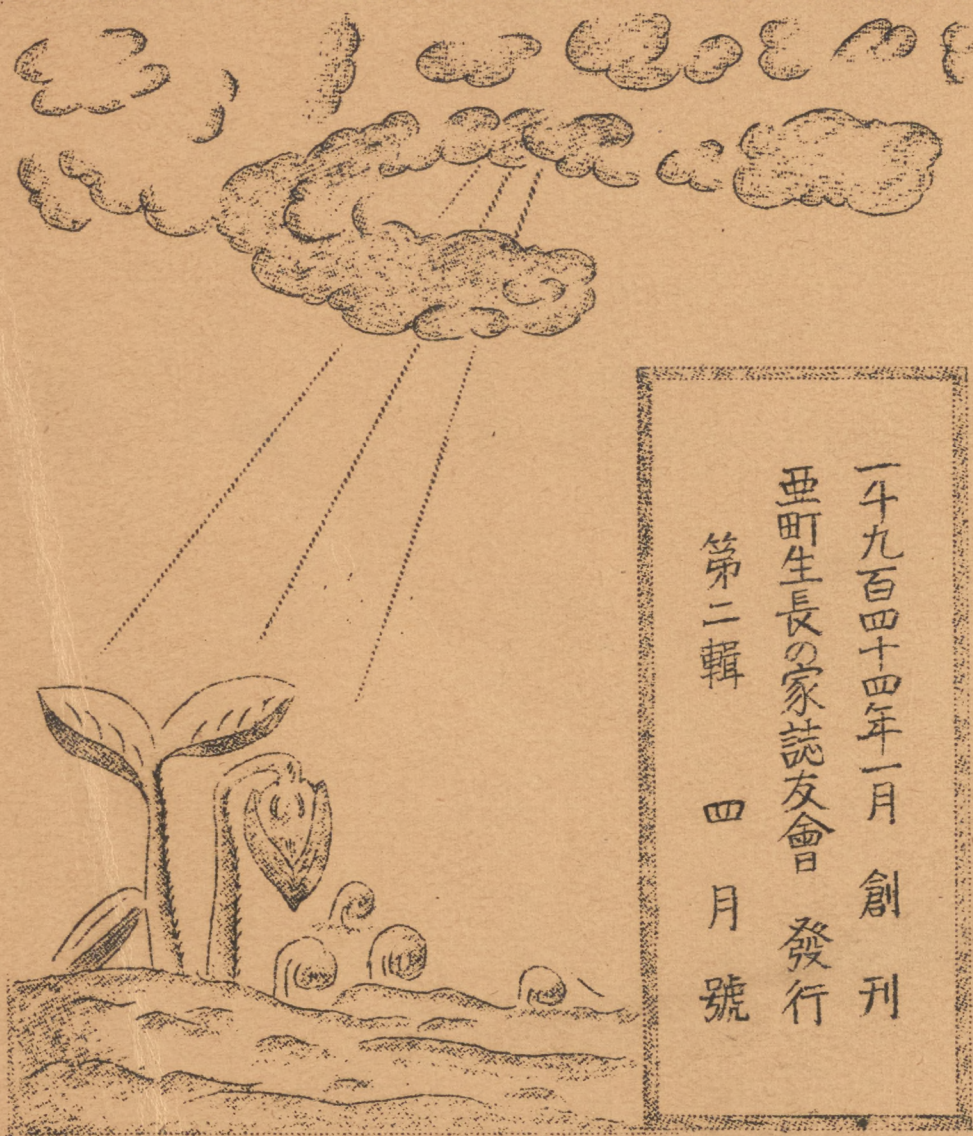 一千九百四十四年一月 創刊
亜町生長の家誌友會 發行
第二輯 四月號